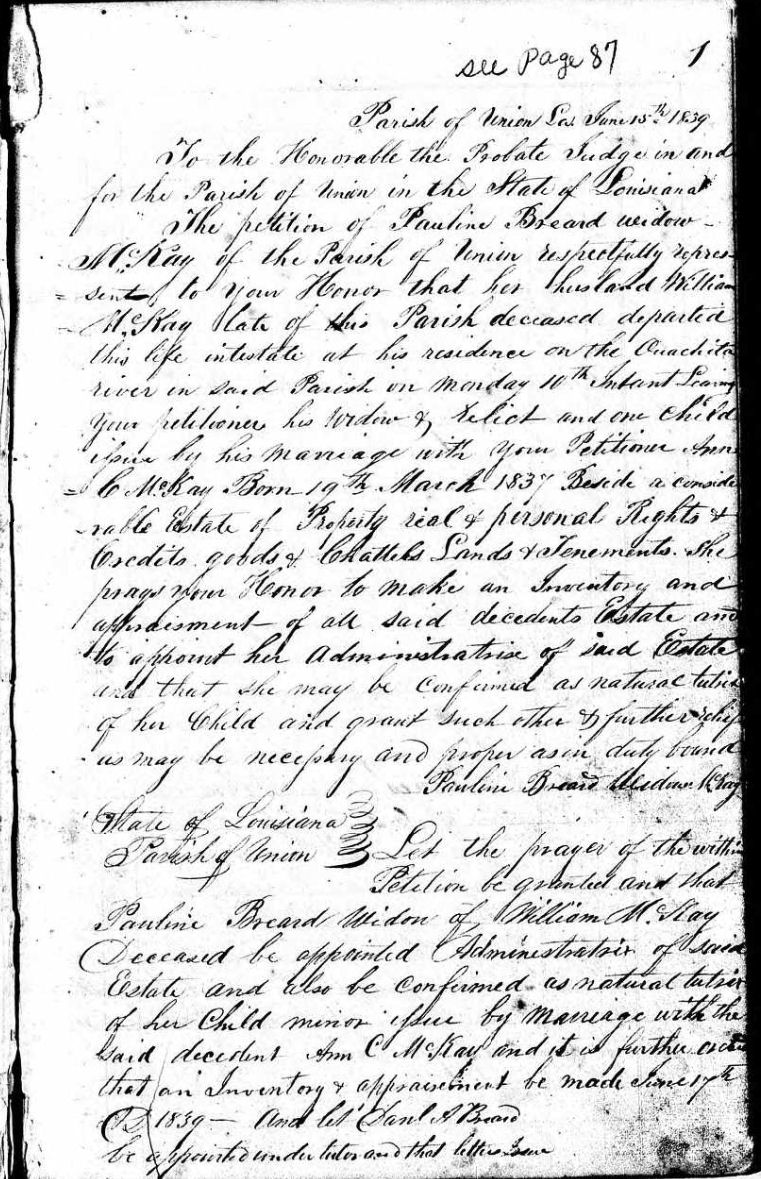 see Page 87 1
Parish of Union La. June 15th 1839
To the Honorable the Probate Judge in and
for the Parish of Union in the State of Louisiana
The petition of Pauline Breard widow
McKay of the Parish of Union respectfully repre-
= sent to your Honor that her husband William
= McKay late of this Parish deceased departed
this life intestate at his residence on the Ouachita
river in said Parish on Monday 10th Instant Leaving
your petitioner his Widow & relict and one Child
issue by his marriage with your Petitioner Ann
= C McKay Born 19th March 1837 Beside a conside
-rable Estate of Property real & personal Rights &
Credits goods & Chattels Lands & Tenements. She
prays your Honor to make an Inventory and
appraisment of all said decedents Estate and
to appoint her Administratrix of said Estate
and that she may be Confirmed as natural tutrix
of her Child and grant such other & further relief
as may be necessary and proper as in duty bound
Pauline Breard Widow McKay
State of Louisiana
Parish of Union Let the prayer of the within
Petition be granted and that
Pauline Breard Widow of William McKay
Deceased be appointed Administratrix of said
Estate and also be Confirmed as natural tutrix
of her Child minor issue by Marriage with the
said decedent Ann C McKay and it is further
that an Inventory & appraisement be made June 17th
AD 1839 — And let Danl A Breard
be appointed under tutor and that letters Issue